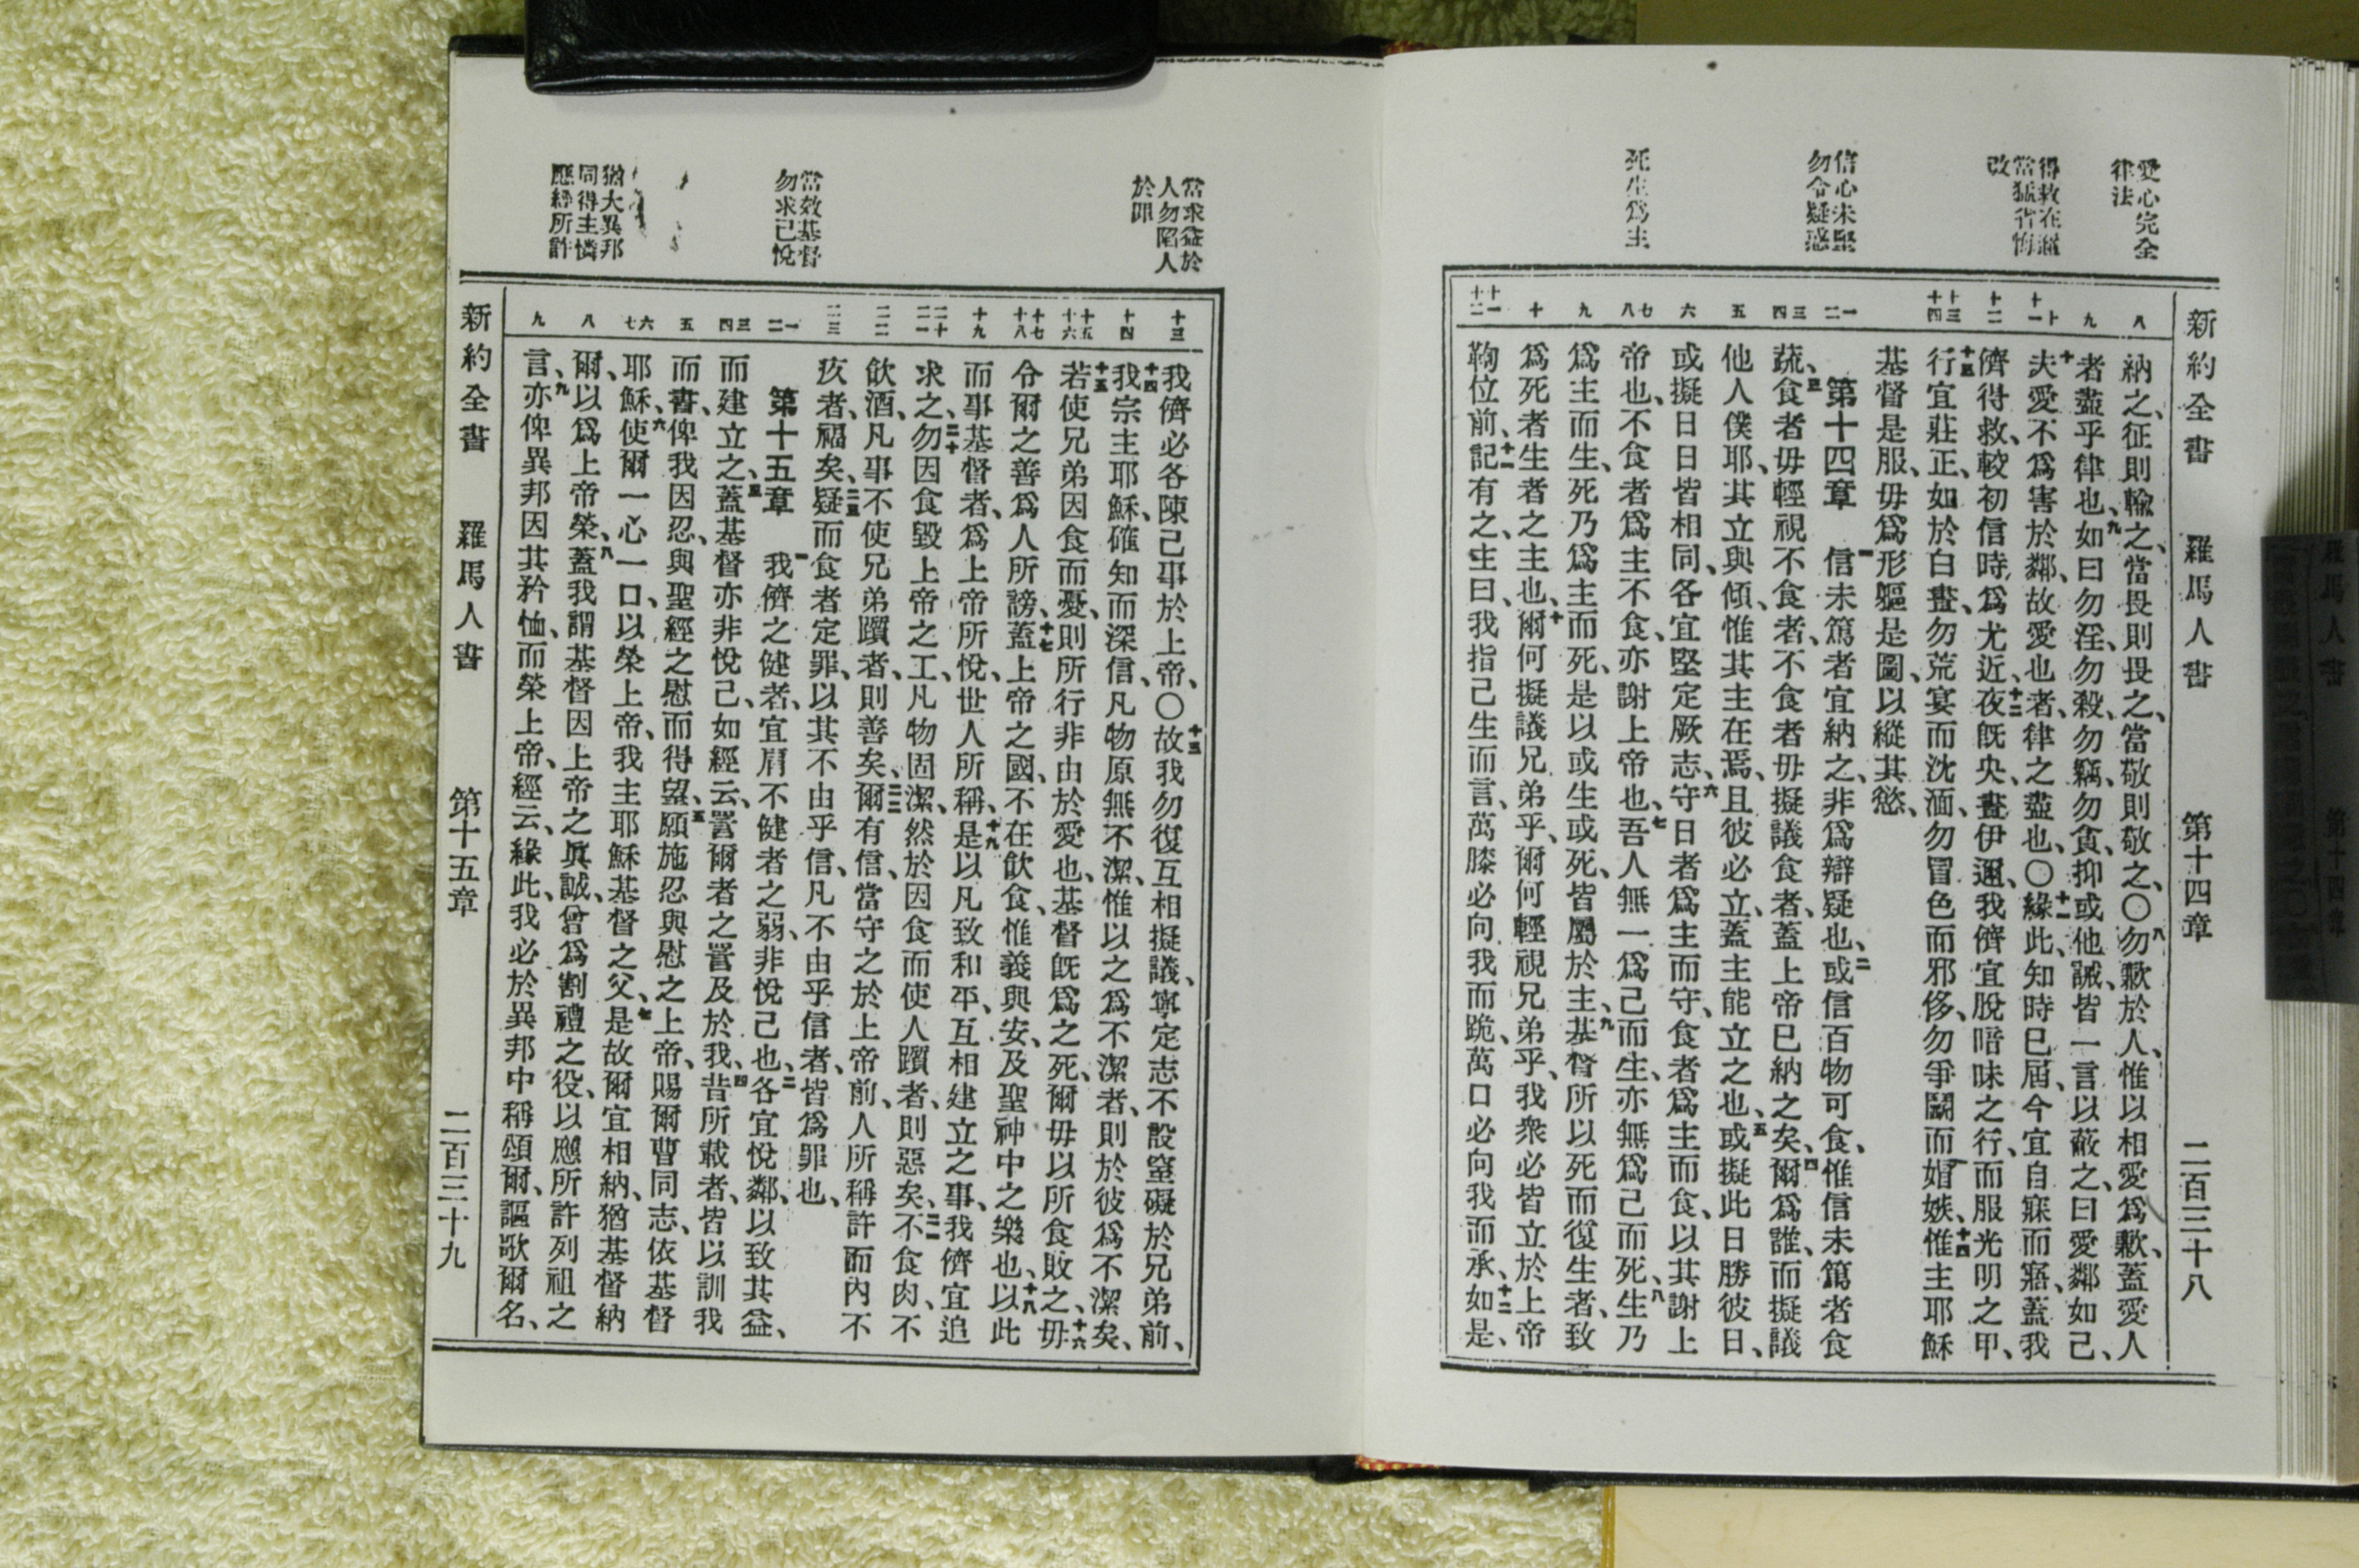 愛心完全
律法
得救在邇
當猛省悔
改
信心未堅
勿令疑惑
死生爲主
新約全書 羅馬人書 第十四章 二百三十八
八
九
十
十一
十二
十三
十四
一
二
三
四
五
六
七
八
九
十
十一
十二
納之、征則輸之、當畏則畏之、當敬則敬之、〇八勿歉於人、惟以相愛爲歉、蓋愛人
者盡乎律也、九如曰勿淫、勿殺、勿竊、勿貪、抑或他誡、皆一言以蔽之、曰愛鄰如己、
十夫愛不爲害於鄰、故愛也者、律之盡也、〇十一緣此、知時已屆、今宜自寐而寤、蓋我
儕得救、較初信時、爲尤近、十二夜旣央、晝伊邇、我儕宜脫暗昧之行、而服光明之甲、
十三行宜莊正、如於白晝、勿荒宴而沈湎、勿冒色而邪侈、勿爭鬭而媢嫉、十四惟主耶穌
基督是服、毋爲形軀是圖、以縱其慾、
第十四章 一信未篤者宜納之、非爲辯疑也、二或信百物可食、惟信未篤者食
蔬、三食者毋輕視不食者、不食者毋擬議食者、蓋上帝已納之矣、四爾爲誰、而擬議
他人僕耶、其立與傾、惟其主在焉、且彼必立、蓋主能立之也、五或擬此日勝彼日、
或擬日日皆相同、各宜堅定厥志、六守日者爲主而守、食者爲主而食、以其謝上
帝也、不食者爲主不食、亦謝上帝也、七吾人無一爲己而生、亦無爲己而死、八生乃
爲主而生、死乃爲主而死、是以或生或死、皆屬於主、九基督所以死而復生者、致
爲死者生者之主也、十爾何擬議兄弟乎、爾何輕視兄弟乎、我衆必皆立於上帝
鞫位前、十一記有之、主曰、我指己生而言、萬膝必向我而跪、萬口必向我而承、十二如是、
當求益於
人勿陷人
於罪
當效基督
勿求己悅
猶大異邦
同得主憐
應經所許
十三
十四
十五
十六
十七
十八
十九
二十
二一
二二
二三
一
二
三
四
五
六
七
八
九
我儕必各陳己事於上帝、〇十三故我勿復互相擬議、寧定志不設窒礙於兄弟前、
十四我宗主耶穌、確知而深信、凡物原無不潔、惟以之爲不潔者、則於彼爲不潔矣、
十五若使兄弟因食而憂、則所行非由於愛也、基督旣爲之死、爾毋以所食敗之、十六毋
令爾之善爲人所謗、十七蓋上帝之國、不在飲食、惟義與安、及聖神中之樂也、十八以此
而事基督者、爲上帝所悅、世人所稱、十九是以凡致和平、互相建立之事、我儕宜追
求之、二十勿因食毀上帝之工、凡物固潔、然於因食而使人躓者、則惡矣、二一不食肉、不
飲酒、凡事不使兄弟躓者、則善矣、二二爾有信、當守之於上帝前、人所稱許而內不
疚者、福矣、二三疑而食者定罪、以其不由乎信、凡不由乎信者、皆爲罪也、
第十五章 一我儕之健者、宜肩不健者之弱、非悅己也、二各宜悅鄰、以致其益、
而建立之、三蓋基督亦非悅己、如經云、詈爾者之詈及於我、四昔所載者、皆以訓我
而書、俾我因忍、與聖經之慰而得望、五願施忍與慰之上帝、賜爾曹同志、依基督
耶穌、六使爾一心一口、以榮上帝、我主耶穌基督之父、七是故爾宜相納、猶基督納
爾、以爲上帝榮、八蓋我謂基督因上帝之眞誠、曾爲割禮之役、以應所許列祖之
言、九亦俾異邦因其矜恤、而榮上帝、經云、緣此、我必於異邦中稱頌爾、謳歌爾名、
新約全書 羅馬人書 第十五章 二百三十九